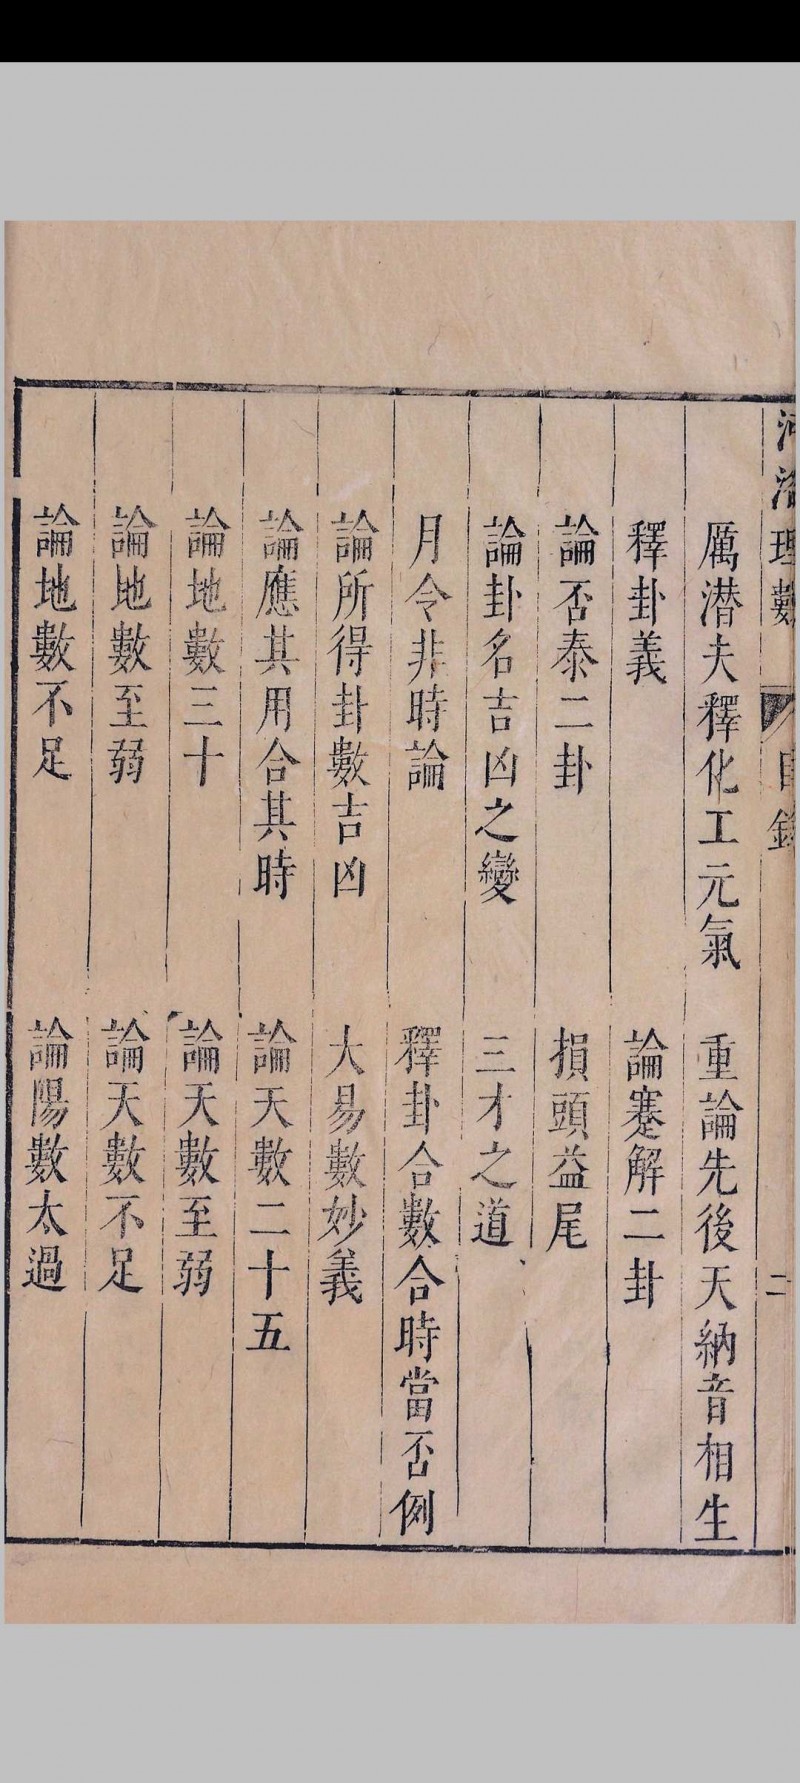 河洛理數 目錄 二
厲潛夫釋化工元氣 重論先後天納音相生
釋卦義 論蹇解二卦
論否泰二卦 損頭益尾
論卦名吉凶之變 三才之道
月令非時論 釋卦合數合時當否例
論所得卦數吉凶 大易數妙義
論應其用合其時 論天數二十五
論地數三十 論天數至弱
論地數至弱 論天數不足
論地數不足 論陽數太過